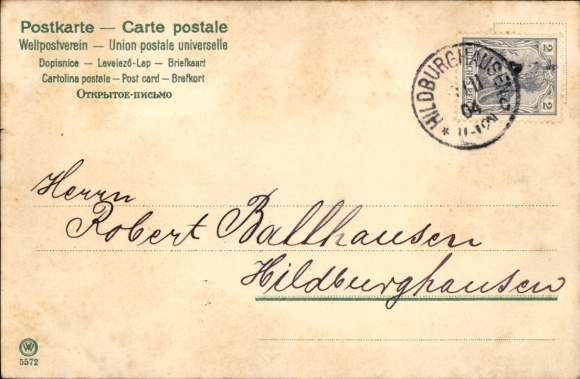 Postkarte — Carte postale
Weltpostverein — Union postale universelle
Dopisnice — Levelező-Lap — Briefkaart
Cartolina postale — Post card — Brefkort
Открытое-письмо
2 2
HILDBURGHAUSEN
11
04
11-12N
Herrn
Robert Ballhausen
Hildburghausen
W
5572